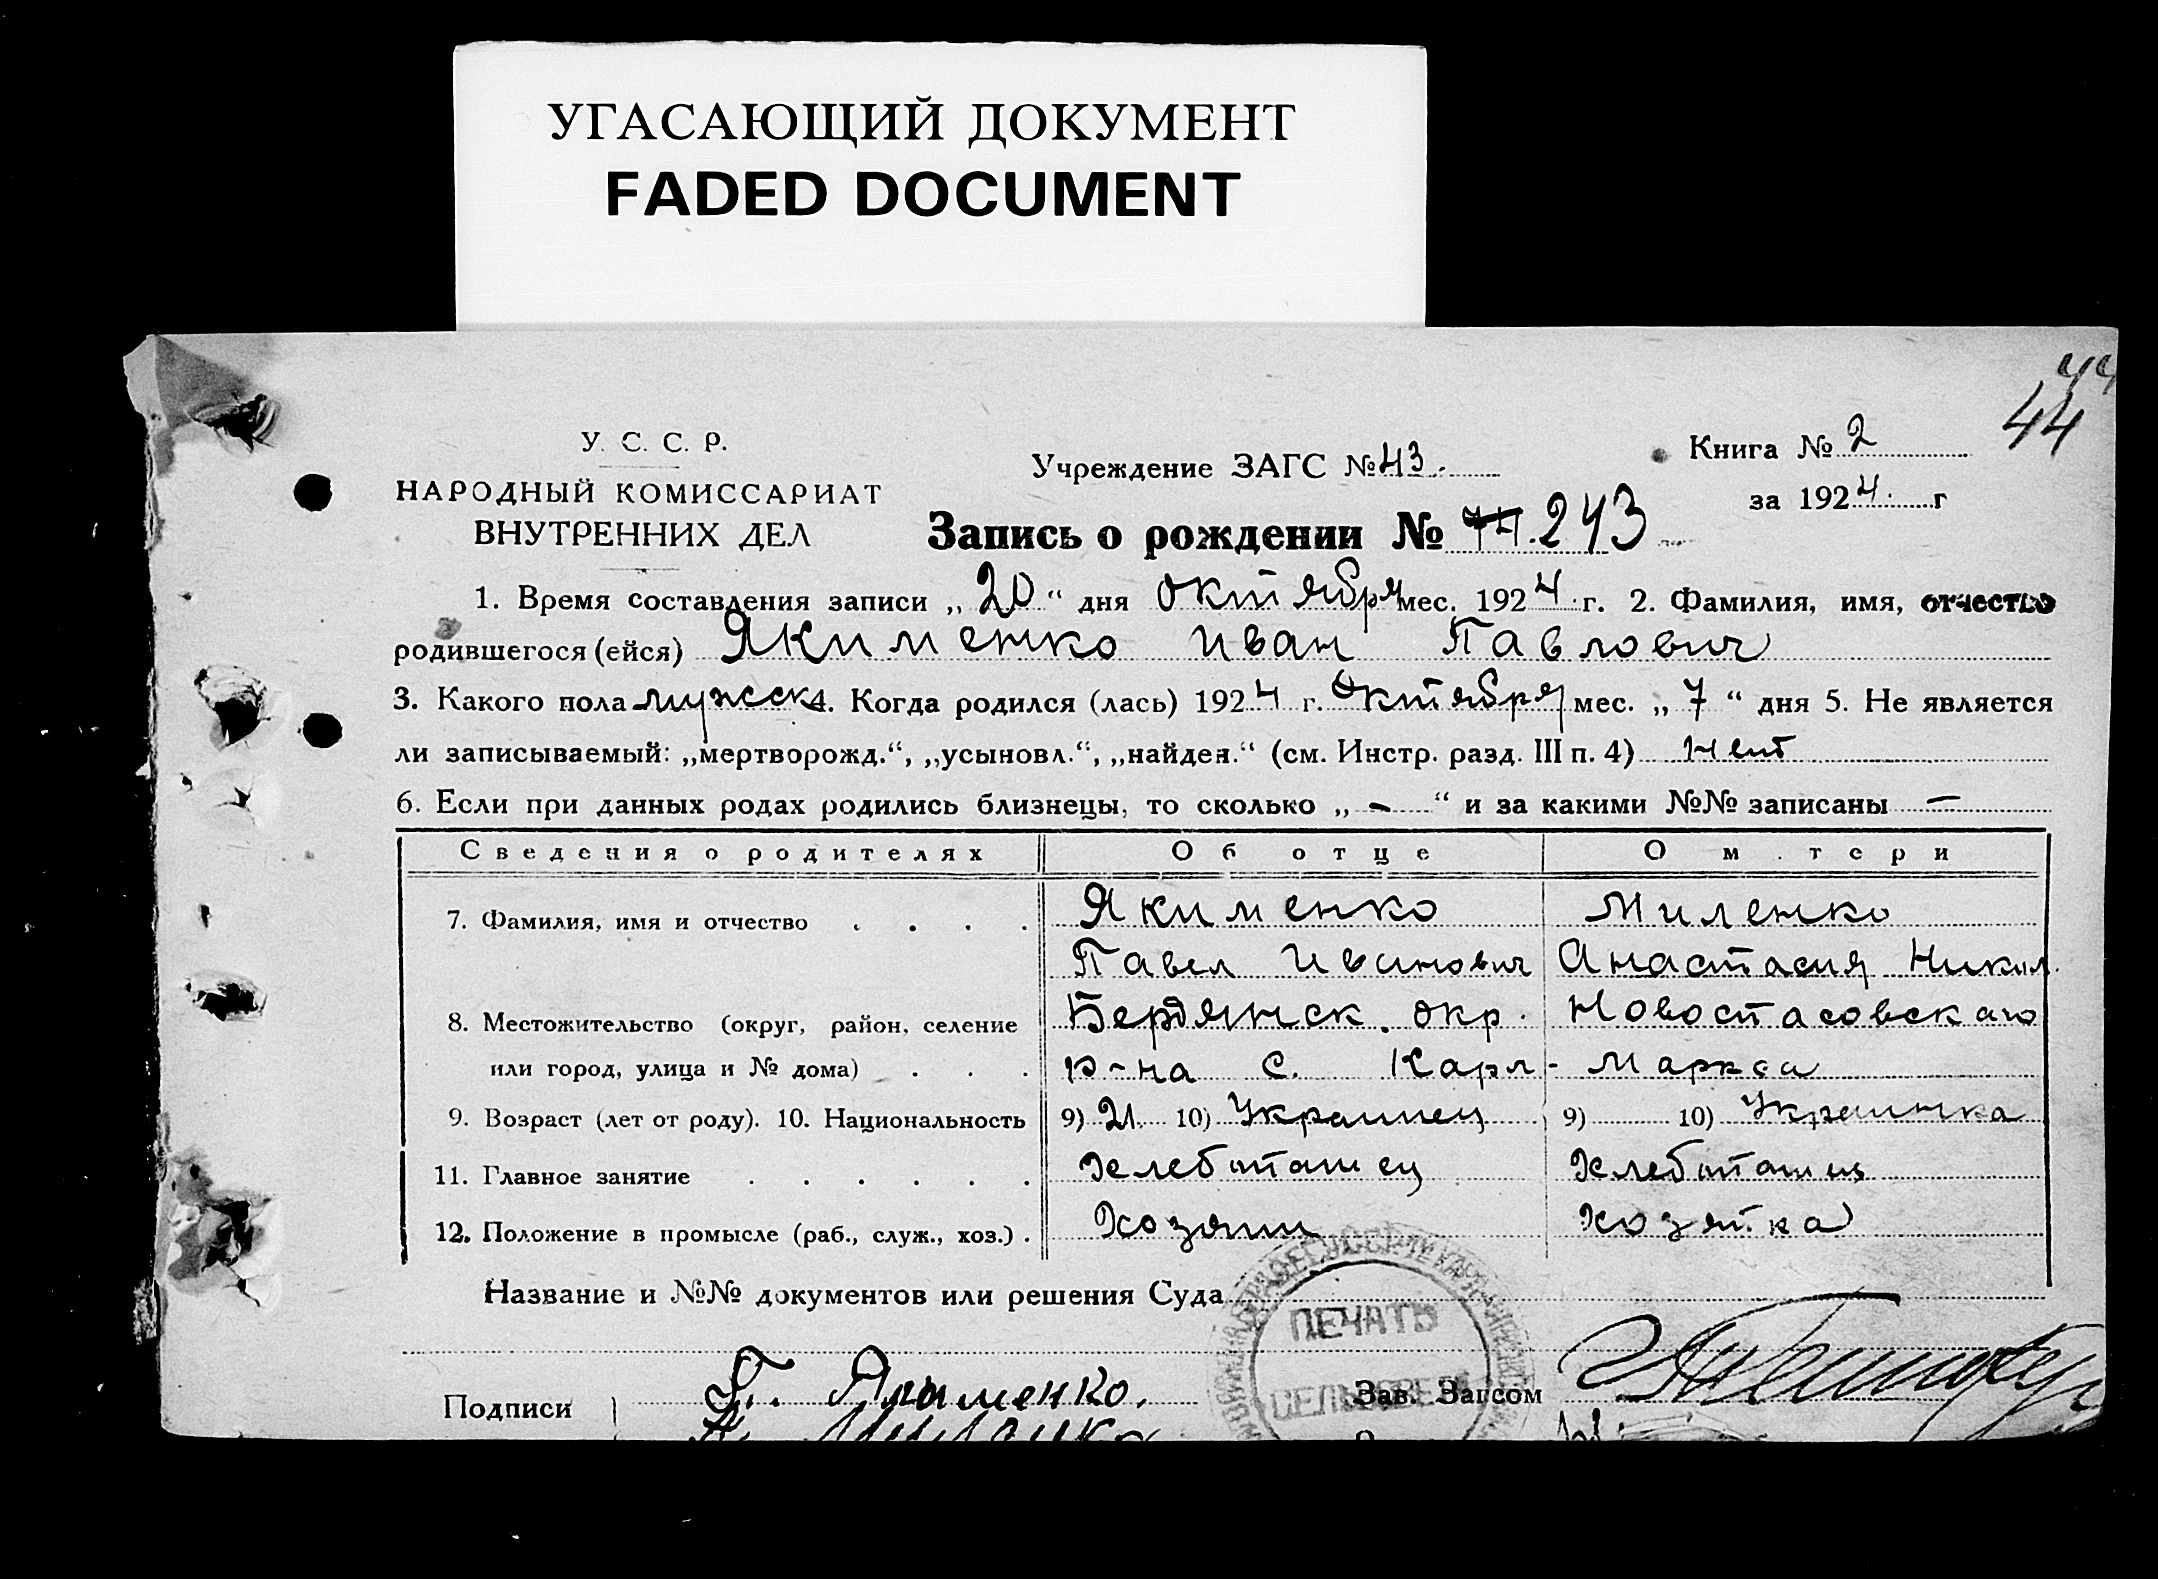 УГАСАЮЩИЙ ДОКУМЕНТ
FADED DOCUMENT
44
44
У. С. С. Р.
НАРОДНЫЙ КОМИССАРИАТ
ВНУТРЕННИХ ДЕЛ
Учреждение ЗАГС № 43.
Книга № 2
за 1924. г
Запись о рождении № 243
1. Время составления записи „20“ дня октября мес. 1924 г. 2. Фамилия, имя, отчество
родившегося (ейся) Якименко Иван Павлович
3. Какого пола мужск 4. Когда родился (лась) 1924 г. Октября мес. „7“ дня 5. Не является
ли записываемый: „мертворожд.“, „усыновл.“, „найден.“ (см. Инстр. разд. III п. 4) нет
6. Если при данных родах родились близнецы, то сколько „-“ и за какими №№ записаны —
Сведения о родителях Об отце О м.тери
7. Фамилия, имя и отчество . . . . Якименко Миленко
Павел Иванович Анастасия Никол.
8. Местожительство (округ, район, селение Бердянск. окр. Новоспасовского
или город, улица и № дома) . . . р-на с. Карл- Маркса
9. Возраст (лет от роду). 10. Национальность 9) 21. 10) Украинец 9) 10) Украинка
11. Главное занятие . . . . . . Хлебопашец Хлебопашец
12. Положение в промысле (раб., служ., хоз.) . Хозяин хозяйка
Название и №№ документов или решения Суда
ПЕЧАТЬ
СЕЛЬСОВЕТ
Подписи П. Якименко. Зав. Загсом